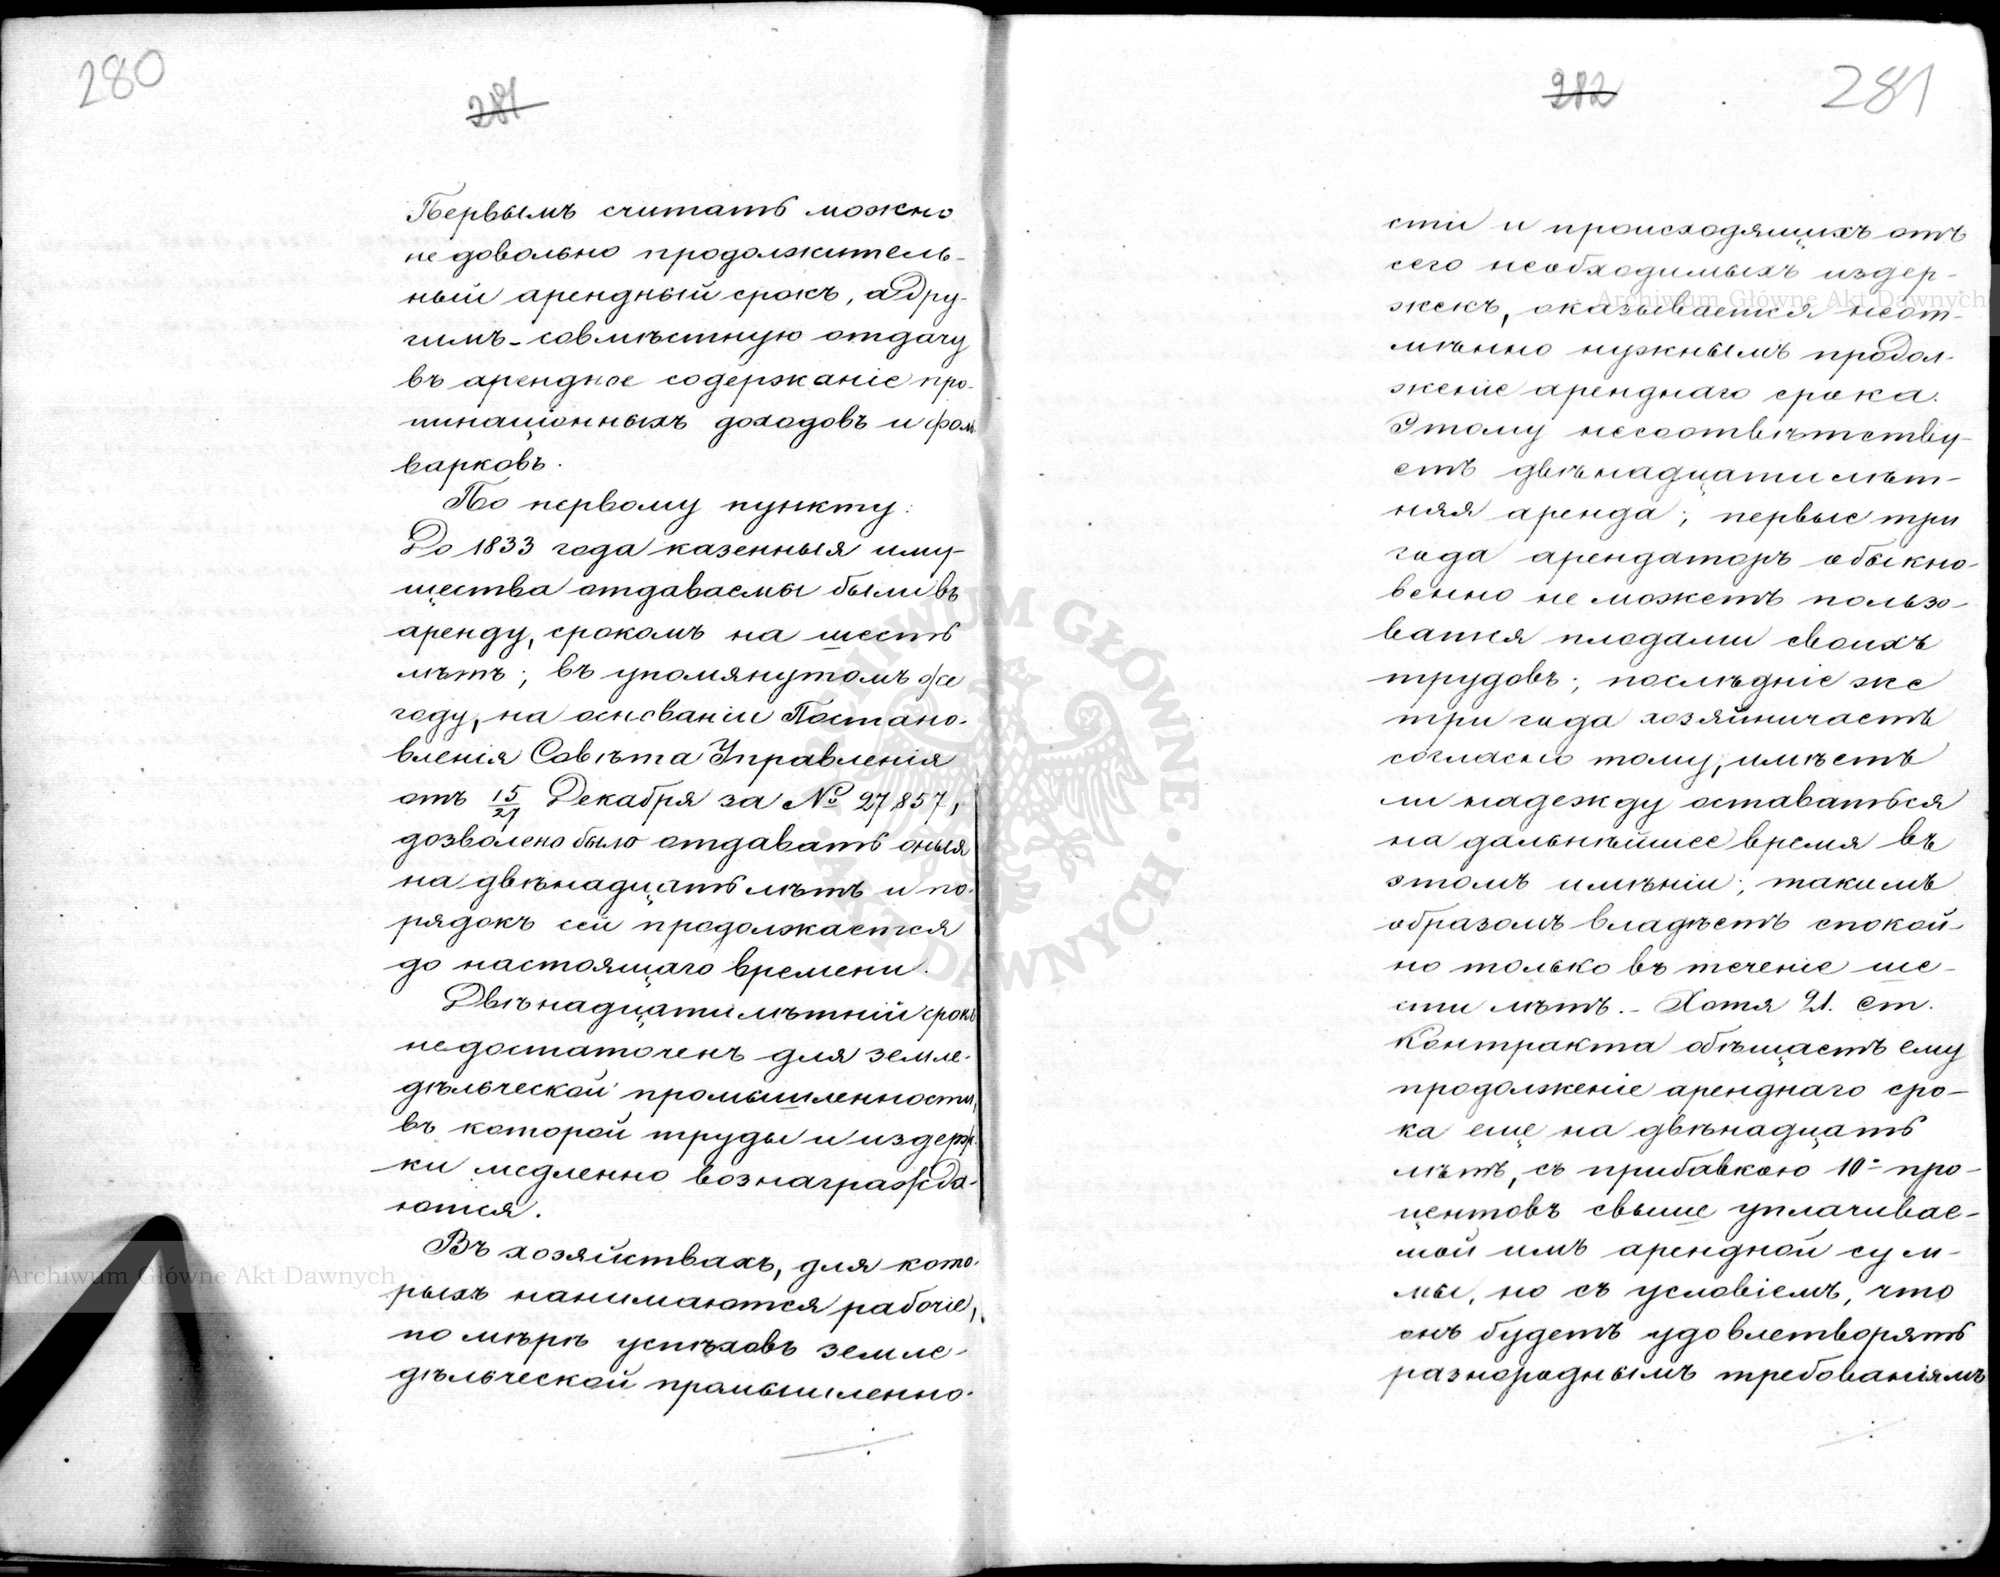 280
281
Первымъ считать можно
не довольно продолжитель-
ный арендный срокъ, а дру-
гимъ-совмѣстную отдачу
въ арендное содержаніе про-
пинаціонныхъ доходовъ и фоль
варковъ.
По первому пункту:
До 1833 года казенныя иму-
щества отдаваемы были въ
аренду, срокомъ на шесть
лѣтъ; въ упомянутомъ же
году, на основаніи Постано-
вленія Совѣта Управленія
отъ 15/27 Декабря за № 27,857,
дозволено было отдавать оныя
на двѣнадцать лѣтъ и по-
рядокъ сей продолжается
до настоящаго времени.
Двѣнадцатилѣтній срокъ
недостаточенъ для земле-
дѣльческой промышленности,
въ которой труды и издерж-
ки медленно вознагражда-
ются.
Въ хозяйствахъ, для кото-
рыхъ нанимаются рабочіе,
по мѣрѣ успѣховъ земле-
дѣльческой промышленно-
282
281
сти и происходящихъ отъ
сего необходимыхъ издер-
жекъ, оказывается неот-
мѣнно нужнымъ продол-
женіе аренднаго срока.
Этому несоотвѣтству-
етъ двѣнадцатилѣт-
няя аренда; первые три
года арендаторъ обыкно-
венно не можетъ пользо-
ватся плодами своихъ
трудовъ; послѣдніе же
три года хозяйничаетъ
согласно тому, имѣетъ
ли надежду оставаться
на дальнѣйшее время въ
этомъ имѣніи; такимъ
образомъ владѣетъ спокой-
но только въ теченіе ше-
сти лѣтъ.- Хотя 21. ст.
Контракта обѣщаетъ ему
продолженіе аренднаго сро-
ка еще на двѣнадцать
лѣтъ, съ прибавкою 10- про-
центовъ свыше уплачивае-
мой имъ арендной сум-
мы, но съ условіемъ, что
онъ будетъ удовлетворять
разнороднымъ требованіямъ
Archiwum Główne Akt Dawnych
Archiwum Główne Akt Dawnych
ARCHIWUM GŁÓWNE AKT DAWNYCH